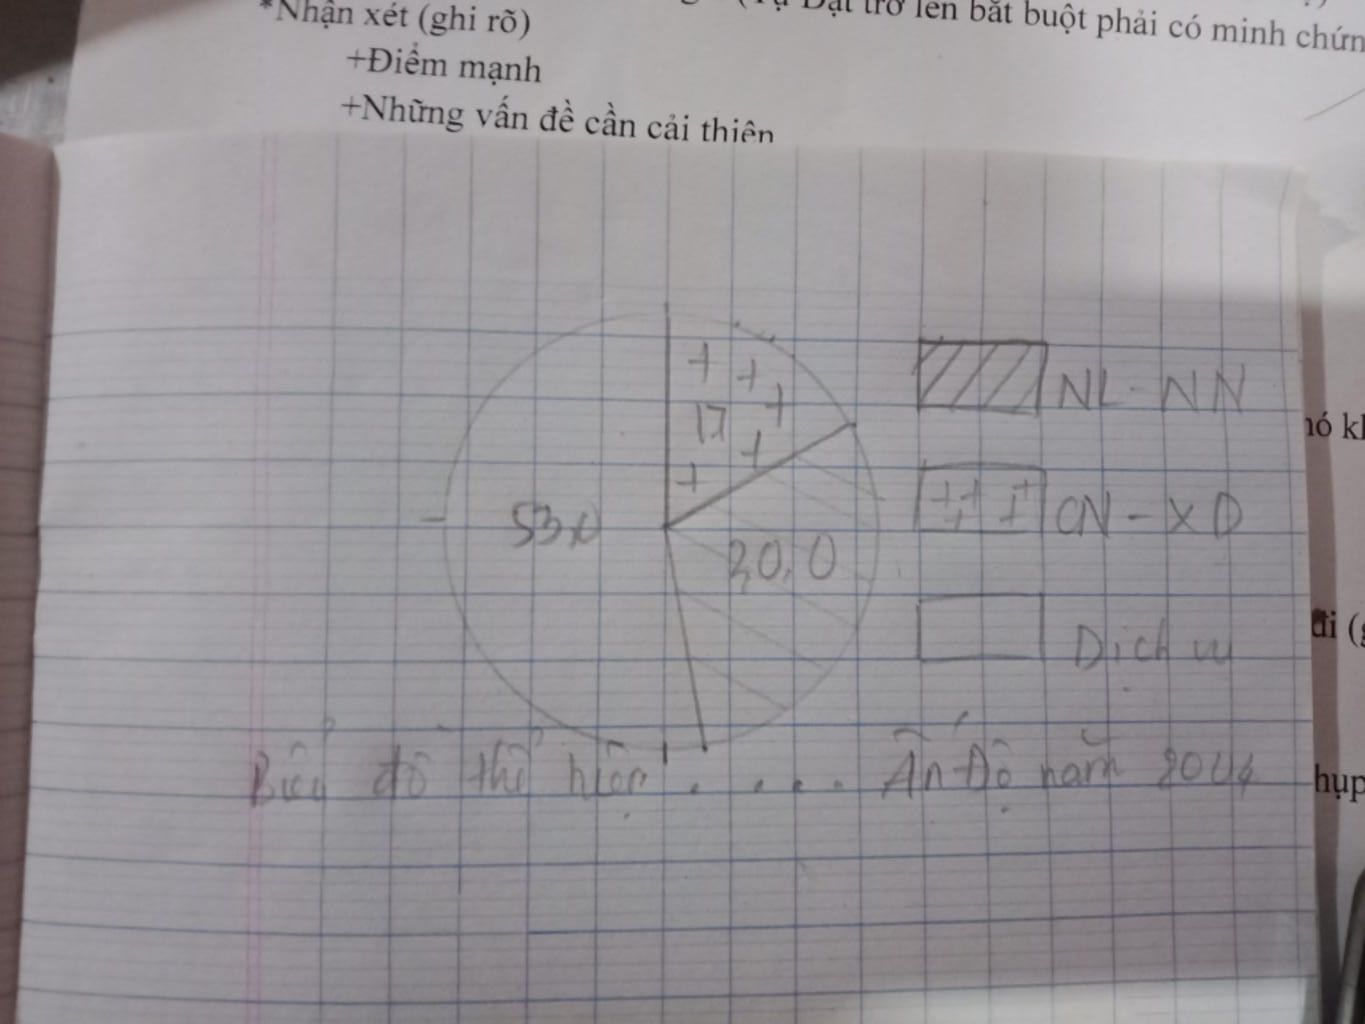 *Nhận xét (ghi rõ)
Đạt trở lên bắt buột phải có minh chứn
+Điểm mạnh
+Những vấn đề cần cải thiện
NL - NN
17
nó kl
CN - XD
53
20,0
đi (g
Dịch vụ
Biểu đồ thể hiện . . . . Ấn Độ năm 2004
hụp